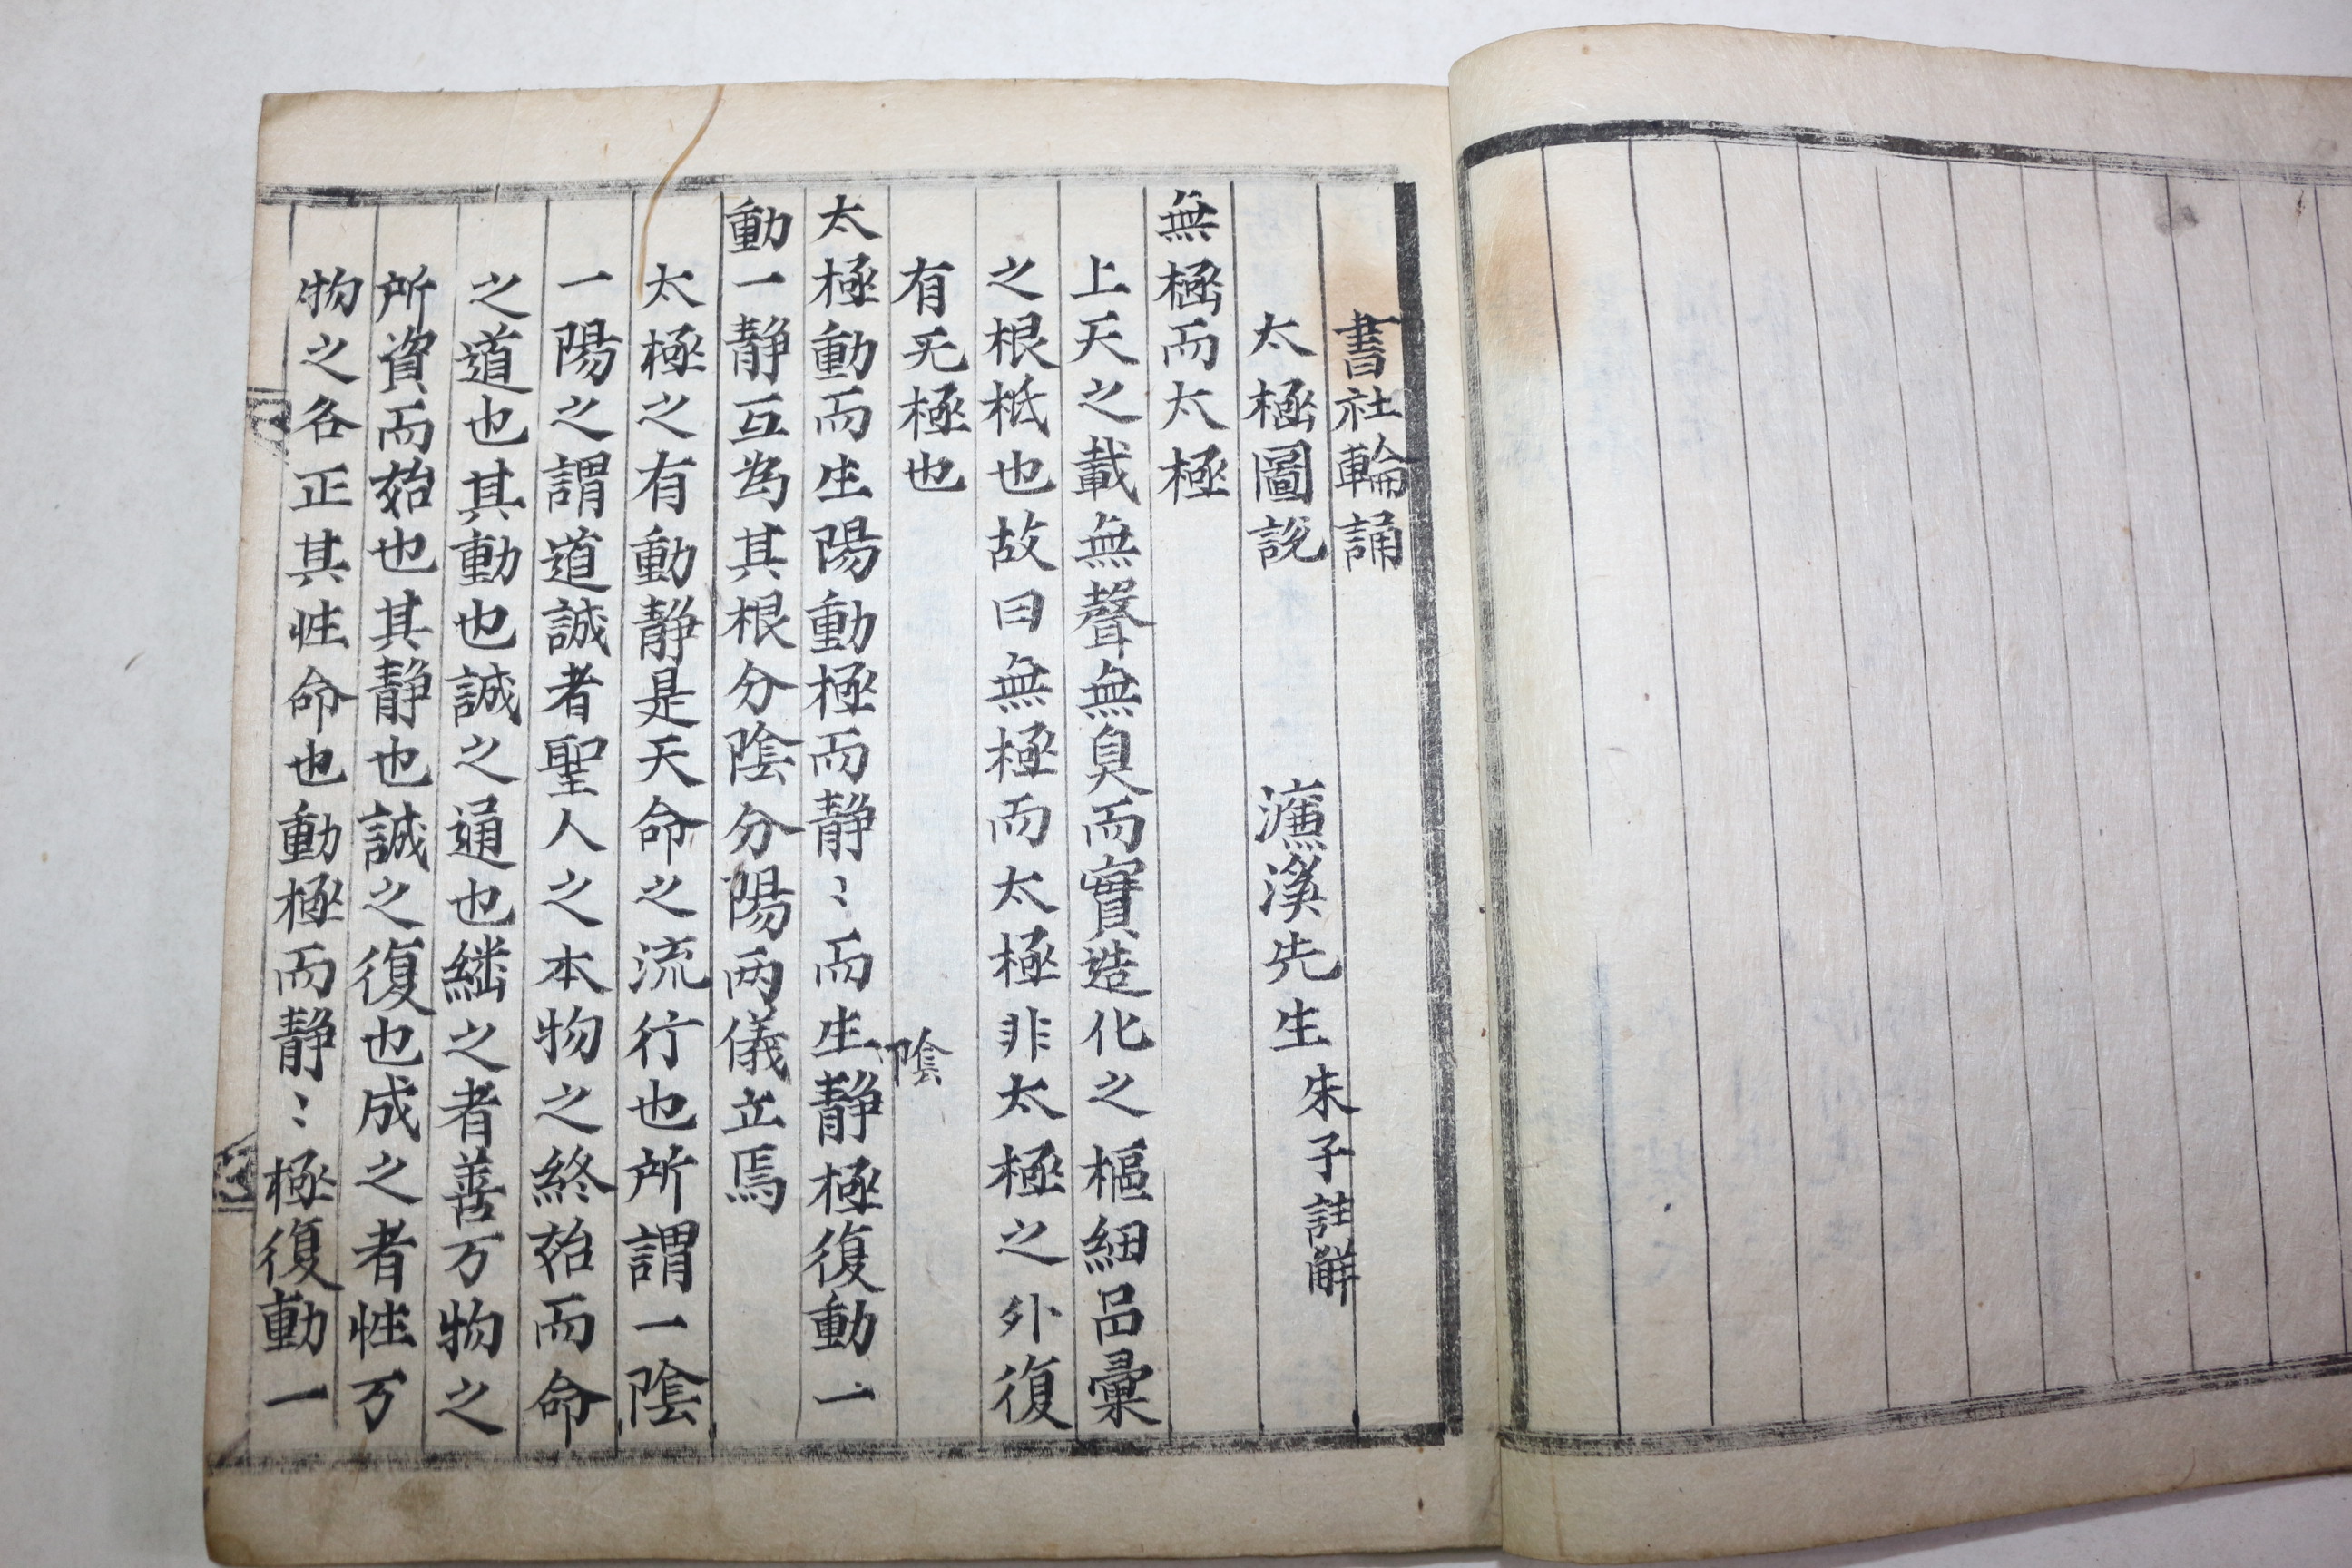 書社輪誦
太極圖說 濂溪先生 朱子註解
無極而太極
上天之載無聲無臭而實造化之樞紐品彙
之根柢也故曰無極而太極非太極之外復
有无極也
太極動而生陽動極而静〻而生静極復動一
陰
動一静互為其根分陰分陽两儀立焉
太極之有動静是天命之流行也所謂一陰
一陽之謂道誠者聖人之本物之終始而命
之道也其動也誠之通也継之者善万物之
所資而始也其静也誠之復也成之者性万
物之各正其性命也動極而静〻極復動一